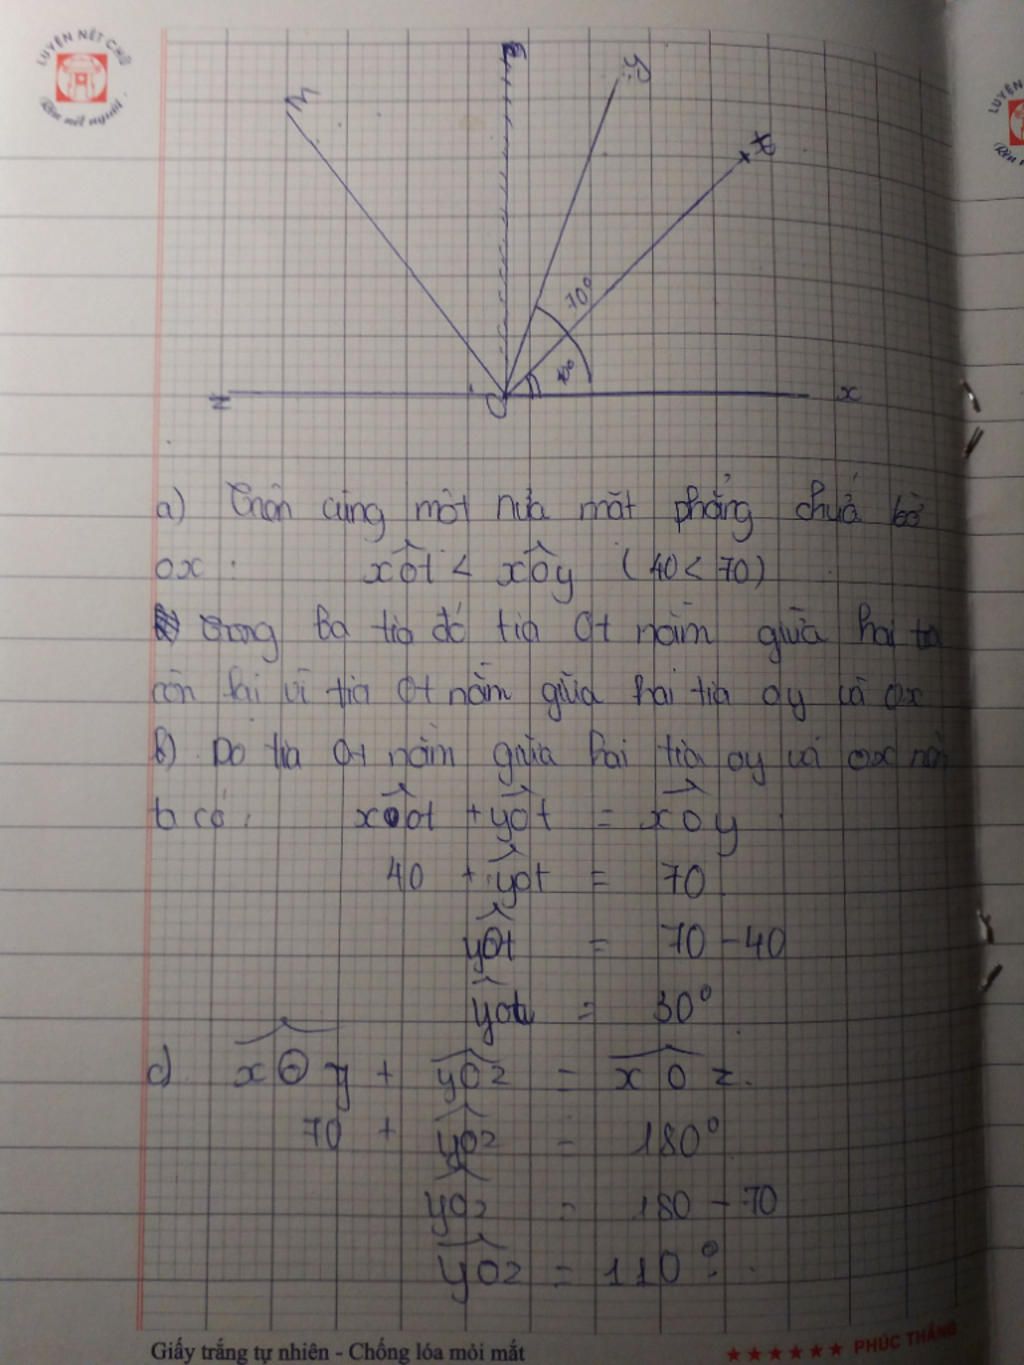 LUYỆN NÉT CHỮ
Rèn nết người
LUYỆN
Rèn n
m
y
t
70°
40°
z
O
x
a) Trên cùng một nửa mặt phẳng chứa bờ
ox : xOt < xOy (40 < 70)
trong ba tia đó tia Ot nằm giữa hai tia
còn lại vì tia Ot nằm giữa hai tia oy và ox
b) Do tia Ot nằm giữa hai tia oy và ox nên
ta có : xOt + yOt = xOy
40 + yOt = 70
yOt = 70 - 40
yOt = 30°
c) xOy + yOz = xOz.
70 + yOz = 180°
yOz = 180 - 70
yOz = 110°
Giấy trắng tự nhiên - Chống lóa mỏi mắt
★★★★★★ PHÚC THẮNG